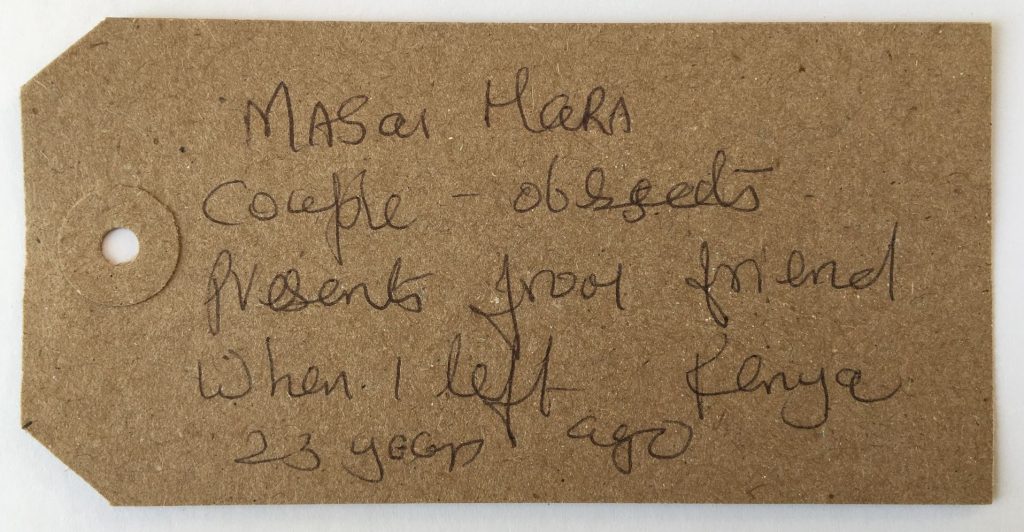 MASai MaRA
couple - objects
presents from friend
when I left Kenya
23 years ago